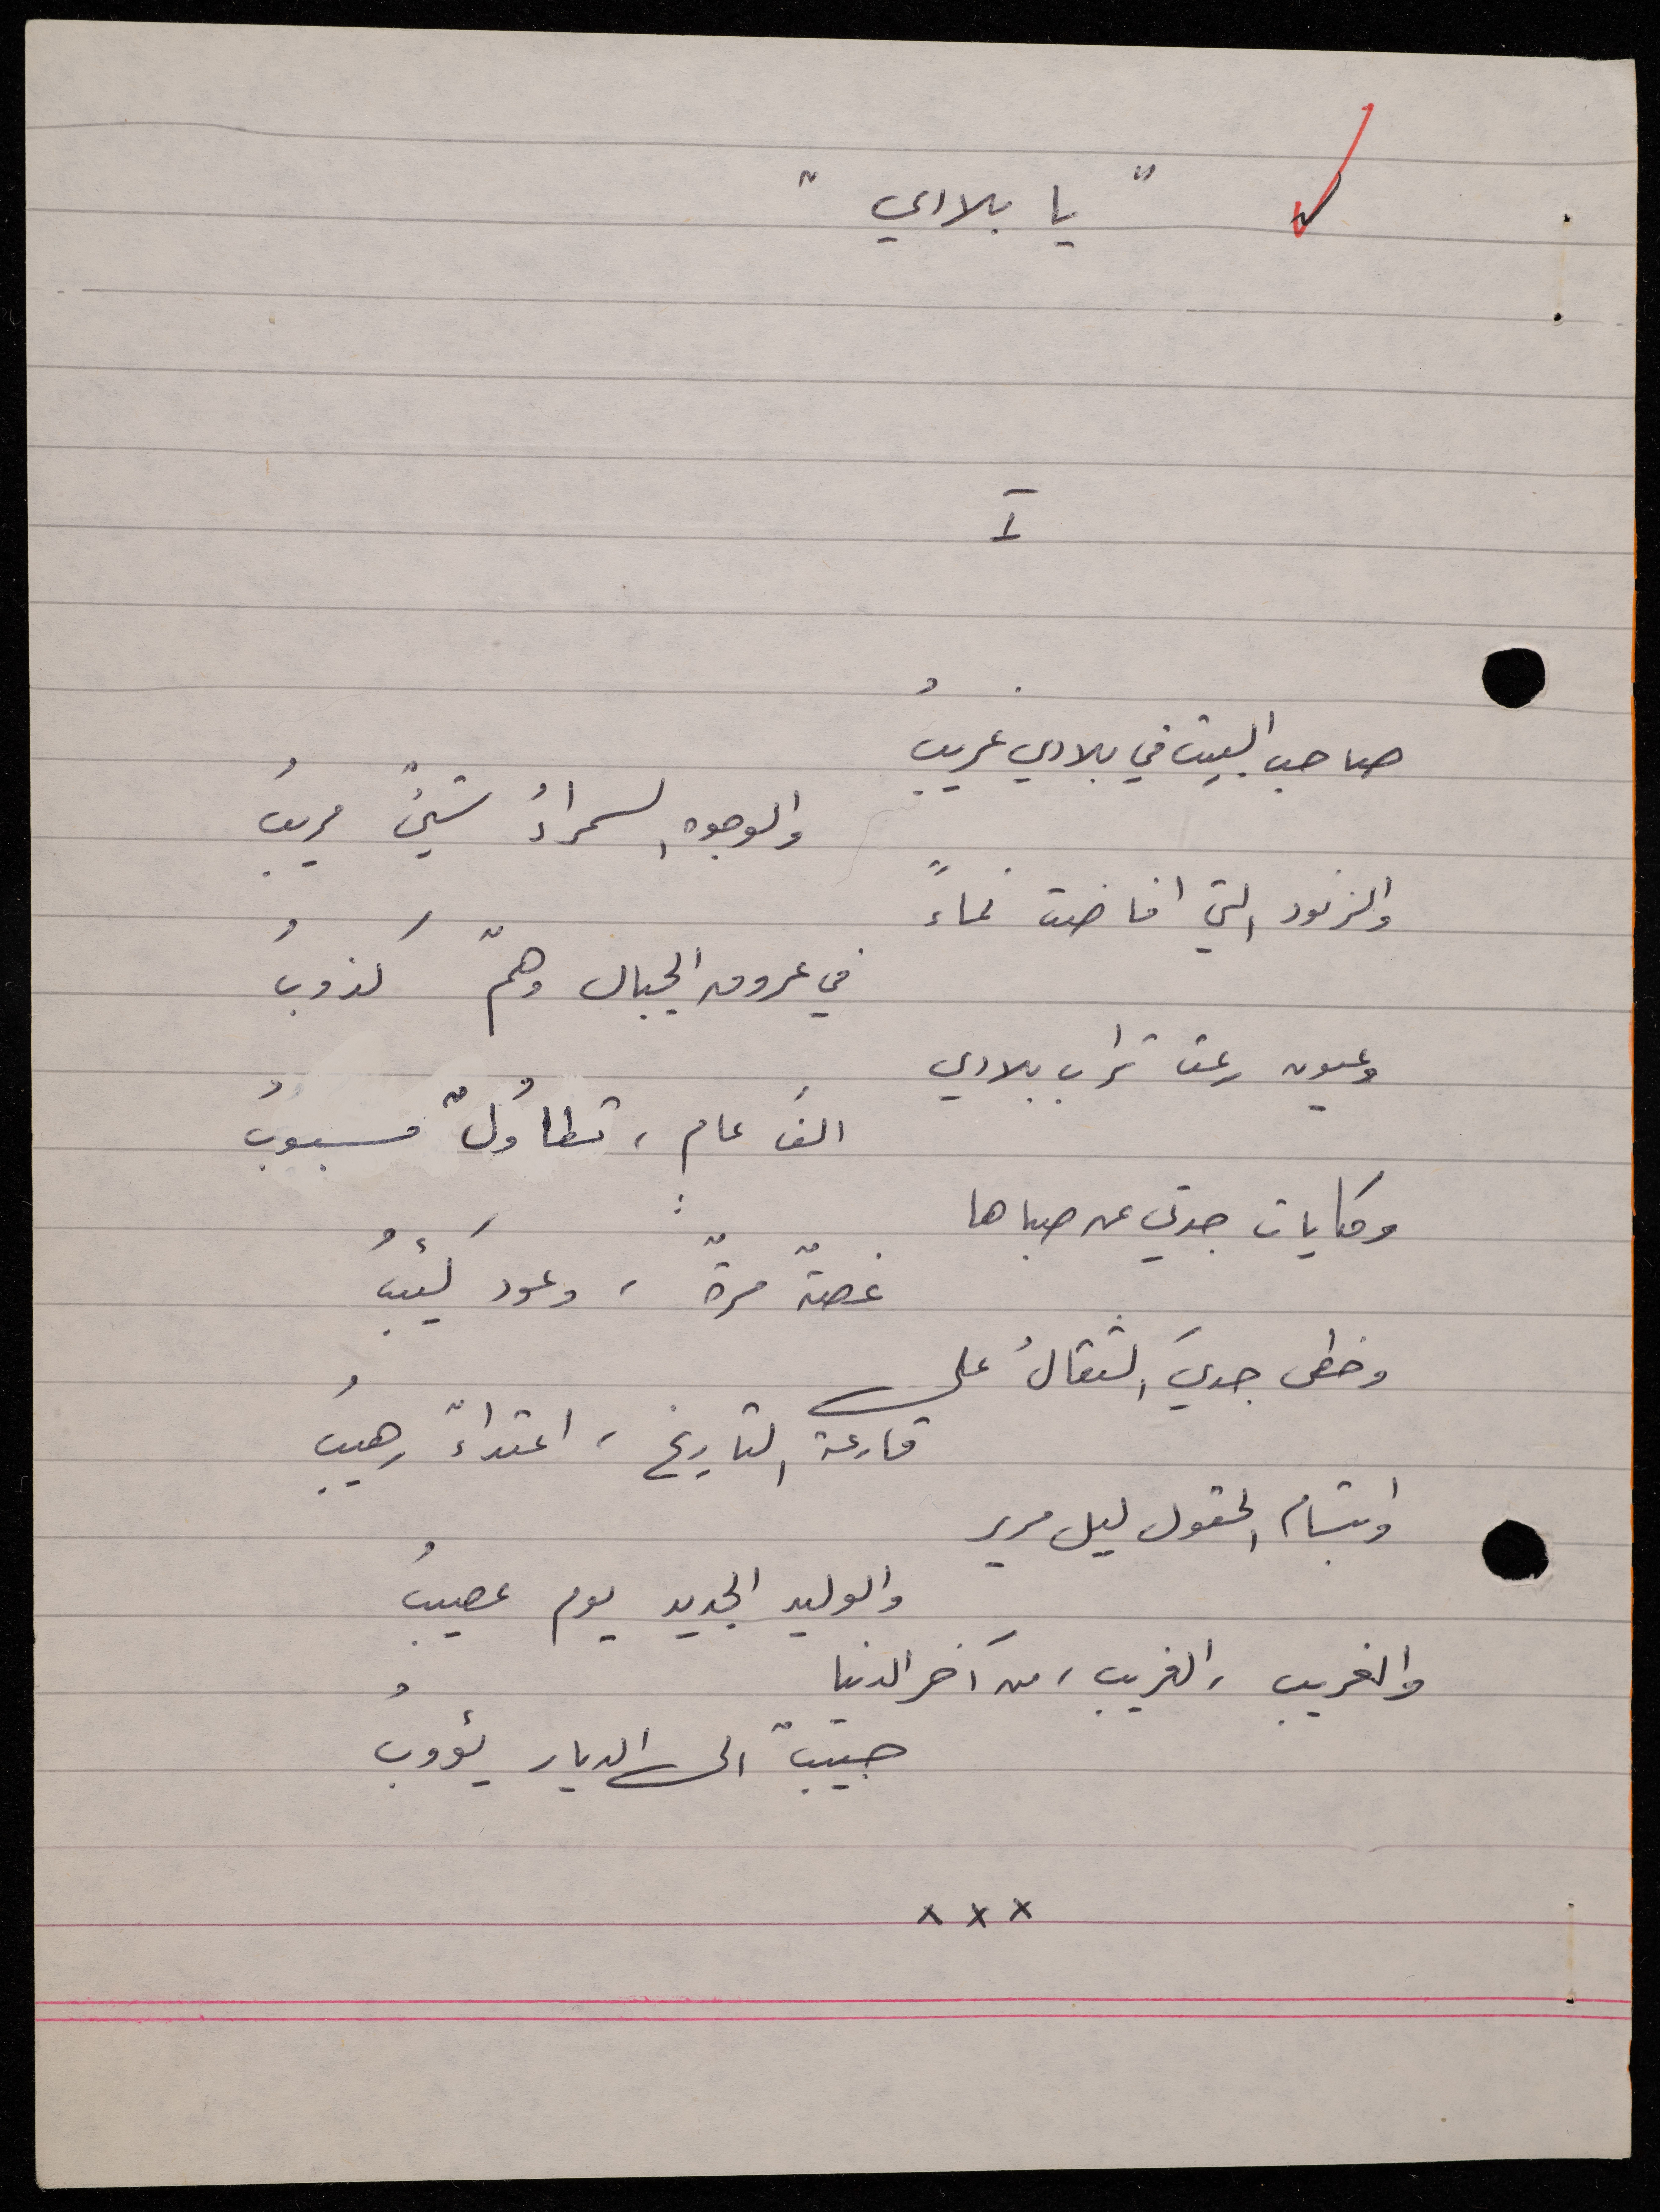 " يا بلادي "
I
صاحب البيت في بلادي غريبُ
والوجوه السمراءُ شيءٌ مريبُ
والزنود التي افاضت نماءً
في عروق الجبال وهمٌ كَذوبُ
وعيون رعت تراب بلادي
الفَ عام ، تطاوُلٌ مسبوبُ
وحكايات جدتي عن صباها
غصةٌ مرةٌ ، وعود كَئيبُ
وخطى جديَ الثقالُ على
قارعة التاريخ ، اعتداءٌ رهيبُ
وابتسام الحقول ليل مرير
والوليد الجديد يوم عصيبُ
والغريب ، الغريب ، من آخر الدنيا
حبيبٌ الى الديار يؤوبُ
x x x